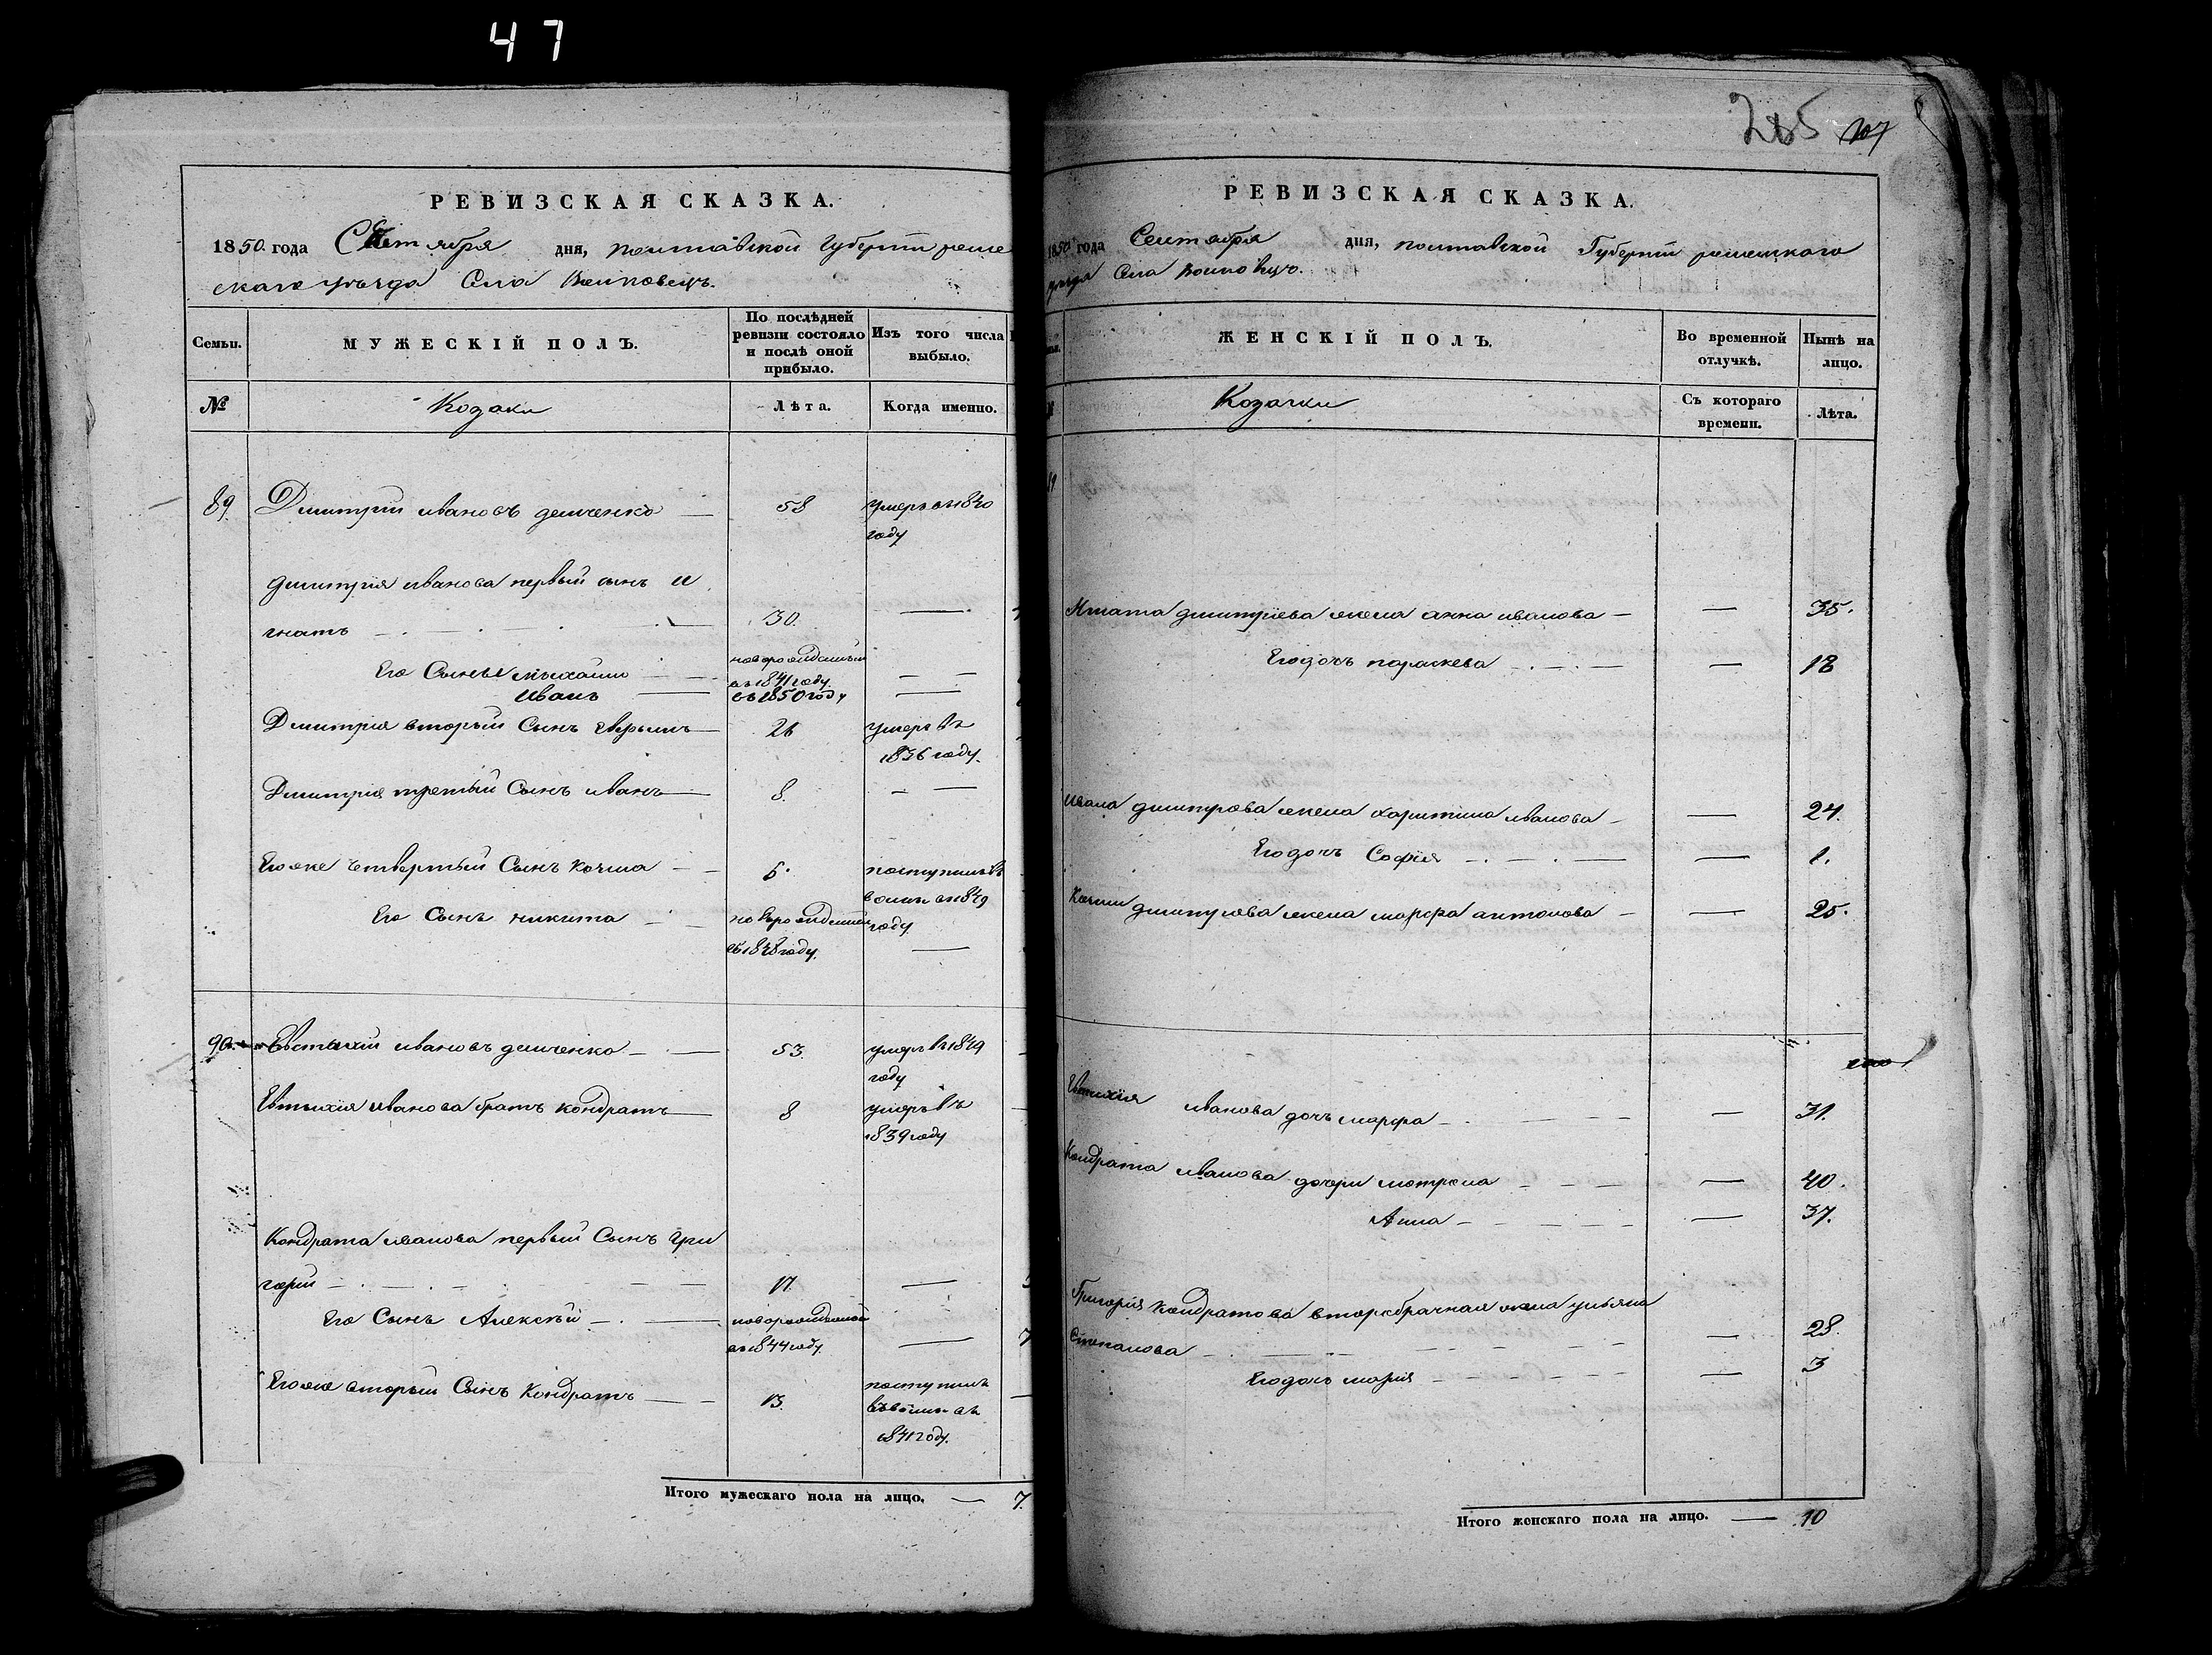 47
РЕВИЗСКАЯ СКАЗКА.
1850. года Сентября дня, полтавской Губернии роме
ского уѣзда Села
Семьи.
МУЖЕСКІЙ ПОЛЪ.
По послѣдней ревизіи состояло и послѣ оной прибыло.
Изъ того числа выбыло.
№
Козаки
Лѣта.
Когда именно.
89. Дмитрий ивановъ демченко — 58 умеръ въ 1840
году
дмитрия иванова первый сынъ и
гнатъ — 30. —
Его Сынья михаило новорожденный
въ 1841 году. — —
иванъ — въ 1850 году —
Дмитрия вторый Сынъ — 26 умеръ въ
1836 году.
Дмитрия третий Сынъ иванъ — 8. — —
Егоже четвертый Сынъ козма — — поступилъ въ
1849
Его Сынъ никита — новорожденный году
въ 1848 году. —
90. Евтихий ивановъ демченко — 53. умеръ въ 1849
году
Евтихия иванова братъ кондратъ — 8 умеръ въ
1839 году
Кондрата иванова первый Сынъ гри
горий — 17. —
Его Сынъ Алексѣй — новорожденной
въ 1844 году. — 7
Егоже вторый Сынъ Кондратъ — 13. поступилъ
въ
1841 году.
Итого мужескаго пола на лицо. — 7.
265 107
РЕВИЗСКАЯ СКАЗКА.
1850 года Сентября дня, полтавской Губернии
уѣзда Села
ЖЕНСКІЙ ПОЛЪ.
Во временной отлучкѣ.
Нынѣ на лицо.
Козачки
Съ котораго времени.
Лѣта.
Игната дмитриева жена анна иванова — — 35.
Егодочь параскева — — 18
Ивана дмитрова жена харитина иванова — — 24.
Егодочь София — — 1.
Козми дмитрова жена марфа антонова — — 25.
Евтихия иванова дочь марфа — — 31.
Кондрата иванова дочери мотрона — — 40.
Анна — — 37.
Григория кондратова второбрачная жена ульяна
Степанова — — 28.
Егодочь мария — — 3
Итого женскаго пола на лицо. — 10